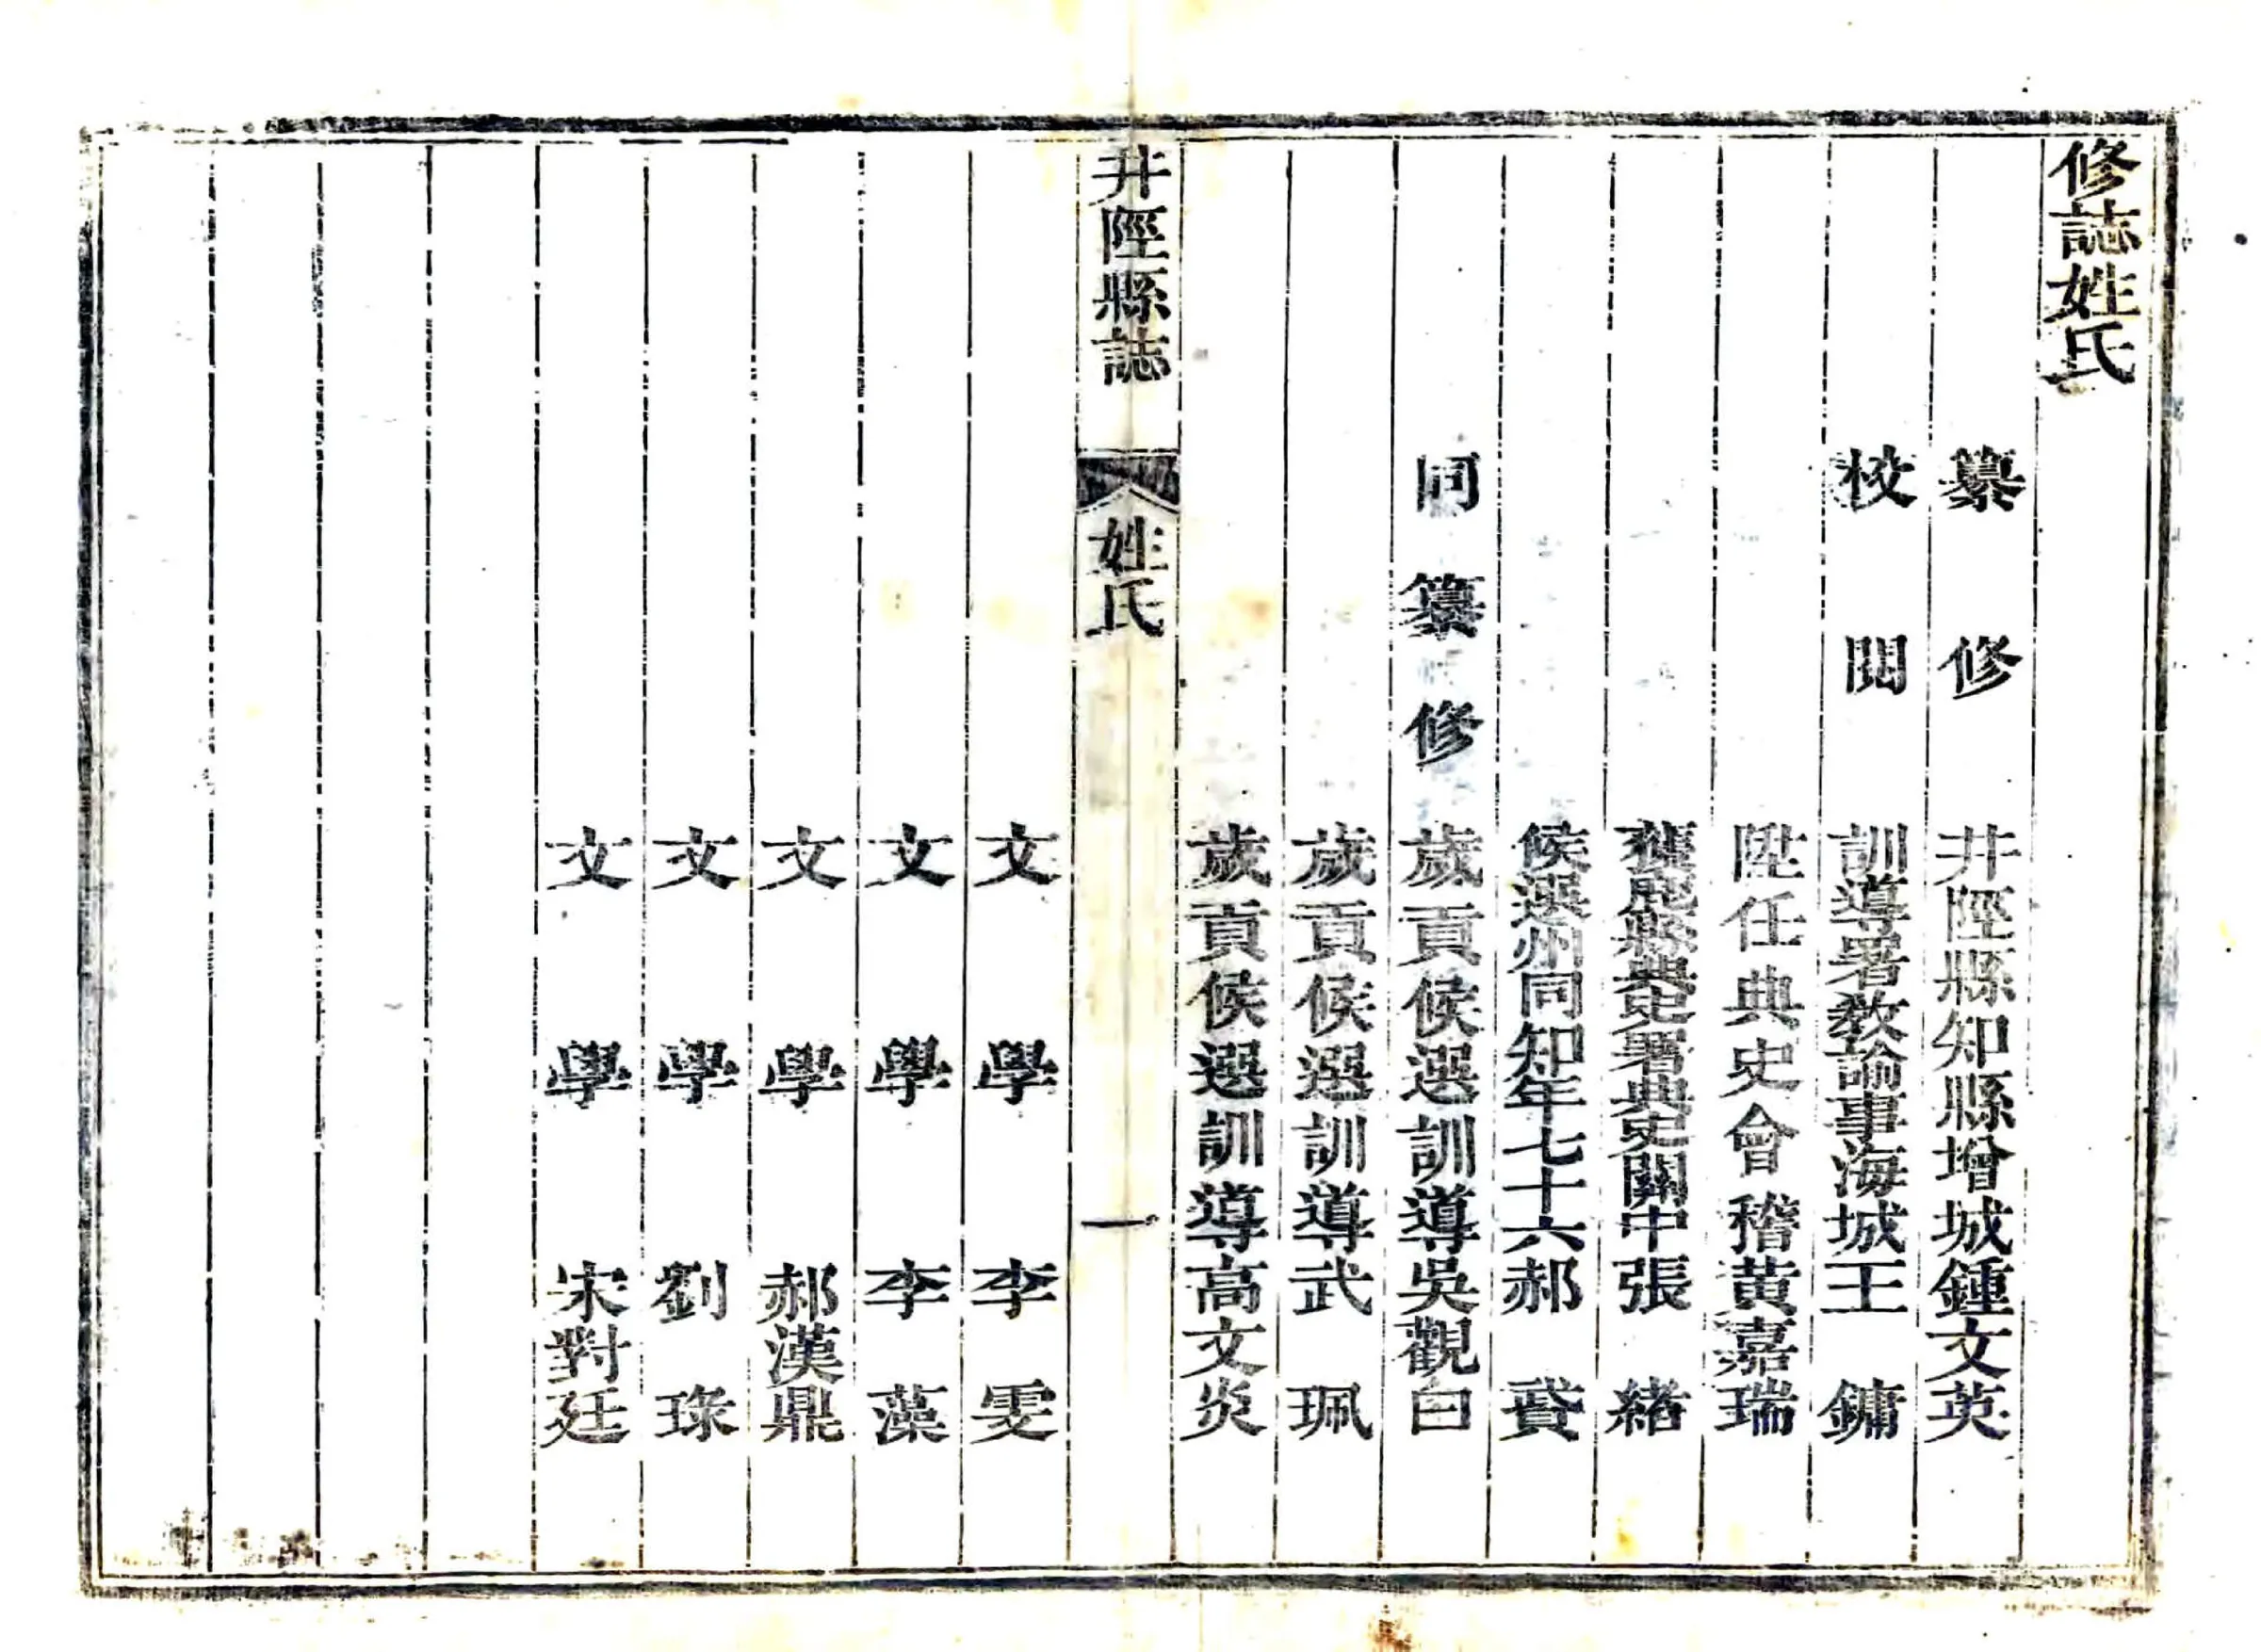 修誌姓氏
纂修 井陘縣知縣增城鍾文英
校閱 訓導署教諭事海城王鏞
陞任典史會稽黃嘉瑞
獲鹿縣典史署典史關中張緒
候選州同知年七十六郝賫
同纂修 歲貢候選訓導吳觀白
歲貢候選訓導武珮
歲貢候選訓導高文炎
井陘縣誌 姓氏 一
文學 李雯
文學 李藻
文學 郝漢鼎
文學 劉琭
文學 宋對廷